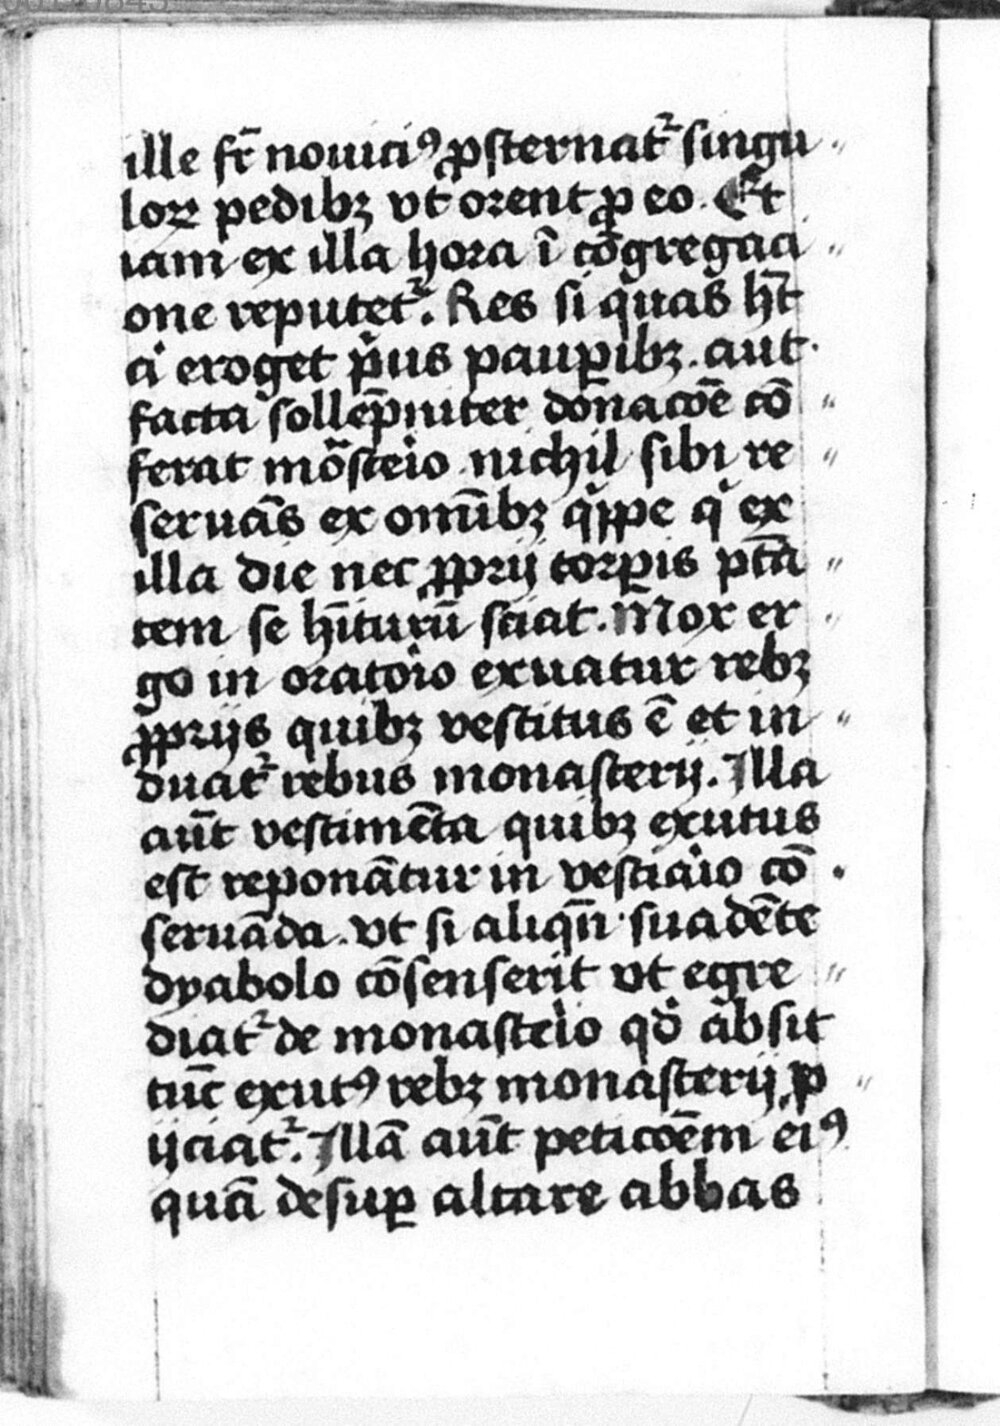 ille fr̄ nouiciꝰ ꝓsternat᷑ singu〃
loꝝ pedibꝫ vt orent ꝓ eo. Et
iam ex illa hora ī cōgregaci〃
one reputet᷑. Res si qͥuas hꝫt
ci eroget pͥus pauꝑibꝫ. aut
facta sollēpniter donacōē cō〃
ferat mōsteͥio nichil sibi re〃
seruās ex om̄ibꝫ qͥppe qͥ ex
illa die nec ꝓprij corꝑis ptā〃
tem se hītuꝝ̄ sciat. Mox er〃
go in oratoͥio exuatur rebꝫ
ꝓprijs quibꝫ vestitus ē et in〃
duat᷑ rebus monasterij. Illa
aūt vestimēta quibꝫ exutus
est reponātur in vestiaͥio cō
seruāda. vt si aliqn̄ suadēte
dyabolo cōsenserit vt egre〃
diat᷑ de monasteͥio qd̓ absit
tūc exutꝰ rebꝫ monasterij ꝓ〃
ijciat᷑. Illā aūt peticōēm eiꝰ
quā desuꝑ altare abbas